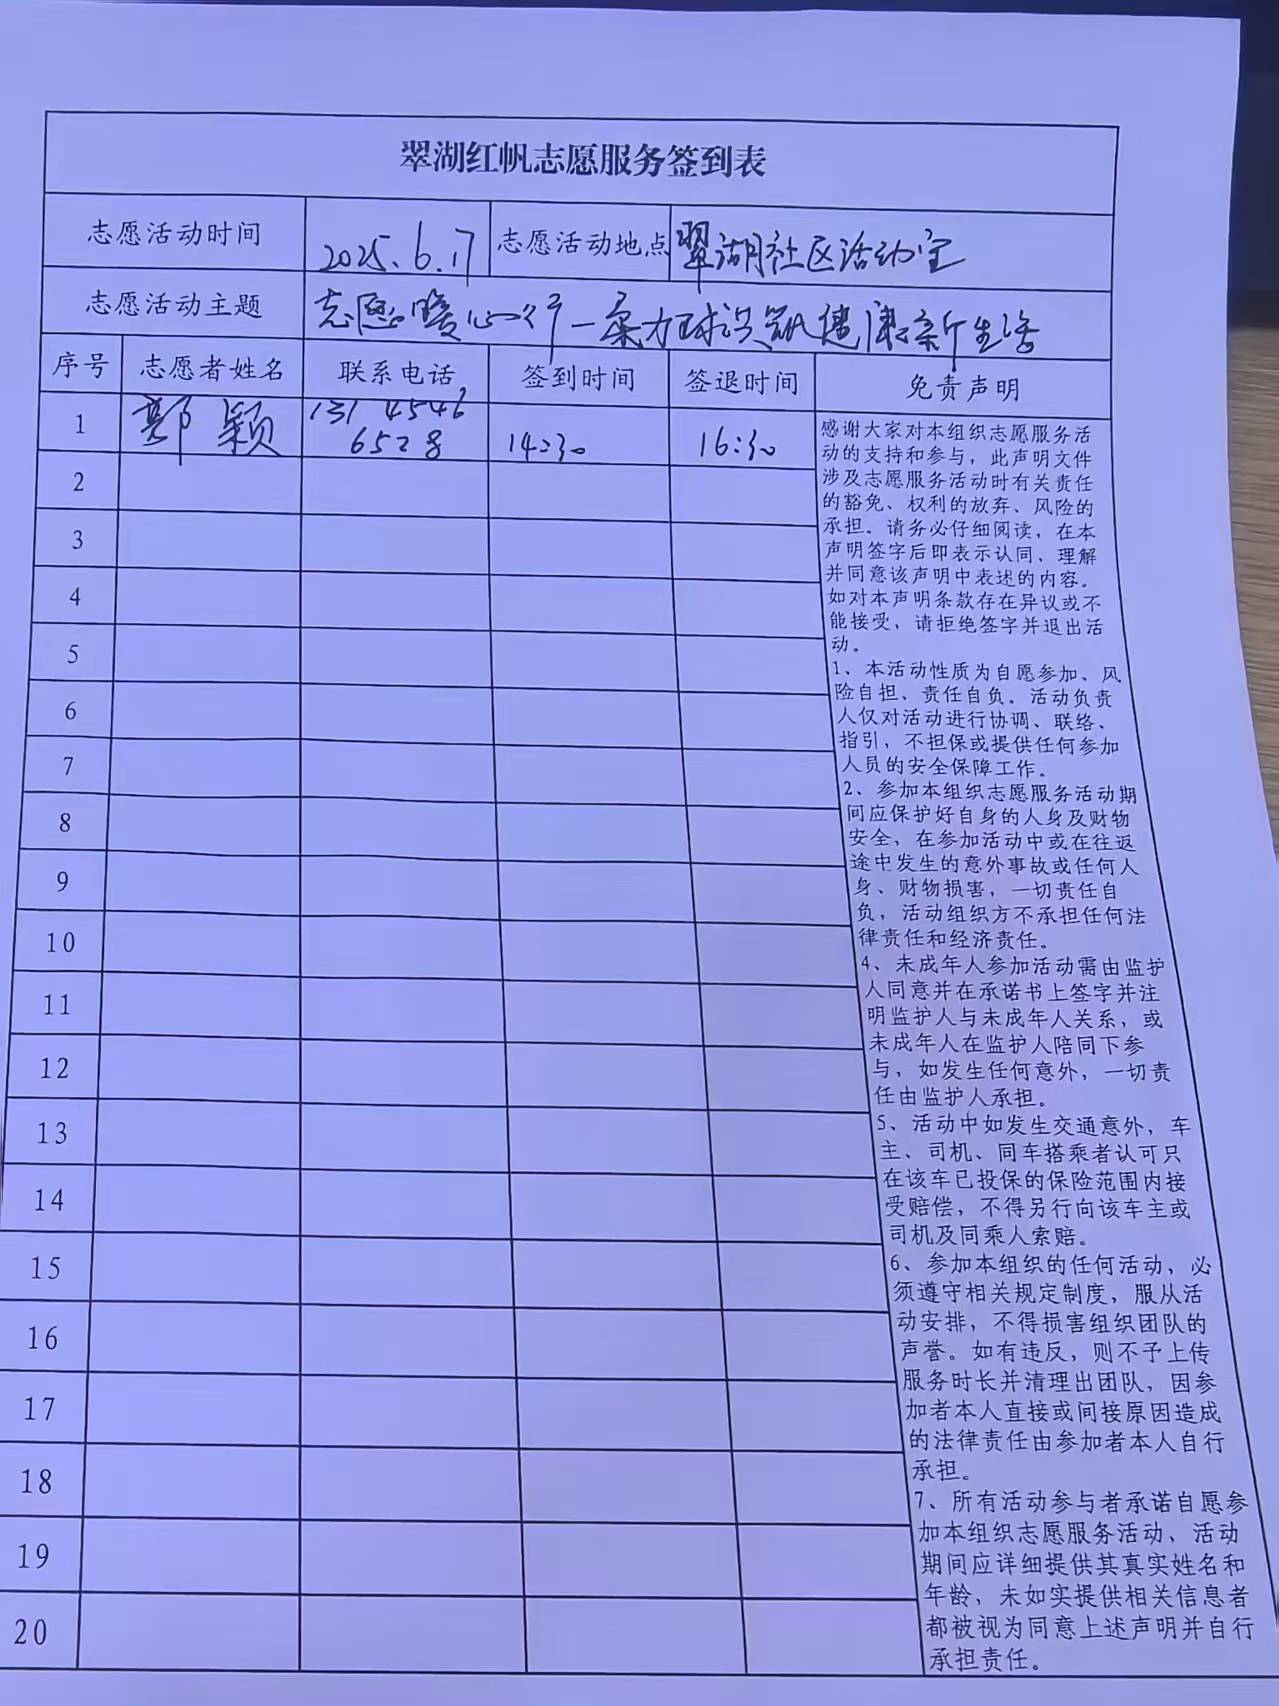 翠湖红帆志愿服务签到表
志愿活动时间 2025.6.17 志愿活动地点 翠湖社区活动室
志愿活动主题 志愿暖心行—柔力球 健康新生活
序号 志愿者姓名 联系电话 签到时间 签退时间 免责声明
1 郑颖 131 4546
6528 14:30 16:30
2
3
4
5
6
7
8
9
10
11
12
13
14
15
16
17
18
19
20
感谢大家对本组织志愿服务活
动的支持和参与，此声明文件
涉及志愿服务活动时有关责任
的豁免、权利的放弃、风险的
承担。请务必仔细阅读，在本
声明签字后即表示认同、理解
并同意该声明中表述的内容。
如对本声明条款存在异议或不
能接受，请拒绝签字并退出活
动。
1、本活动性质为自愿参加、风
险自担、责任自负。活动负责
人仅对活动进行协调、联络、
指引，不担保或提供任何参加
人员的安全保障工作。
2、参加本组织志愿服务活动期
间应保护好自身的人身及财物
安全，在参加活动中或在往返
途中发生的意外事故或任何人
身、财物损害，一切责任自
负，活动组织方不承担任何法
律责任和经济责任。
4、未成年人参加活动需由监护
人同意并在承诺书上签字并注
明监护人与未成年人关系，或
未成年人在监护人陪同下参
与，如发生任何意外，一切责
任由监护人承担。
5、活动中如发生交通意外，车
主、司机、同车搭乘者认可只
在该车已投保的保险范围内接
受赔偿，不得另行向该车主或
司机及同乘人索赔。
6、参加本组织的任何活动，必
须遵守相关规定制度，服从活
动安排，不得损害组织团队的
声誉。如有违反，则不予上传
服务时长并清理出团队，因参
加者本人直接或间接原因造成
的法律责任由参加者本人自行
承担。
7、所有活动参与者承诺自愿参
加本组织志愿服务活动、活动
期间应详细提供其真实姓名和
年龄，未如实提供相关信息者
都被视为同意上述声明并自行
承担责任。